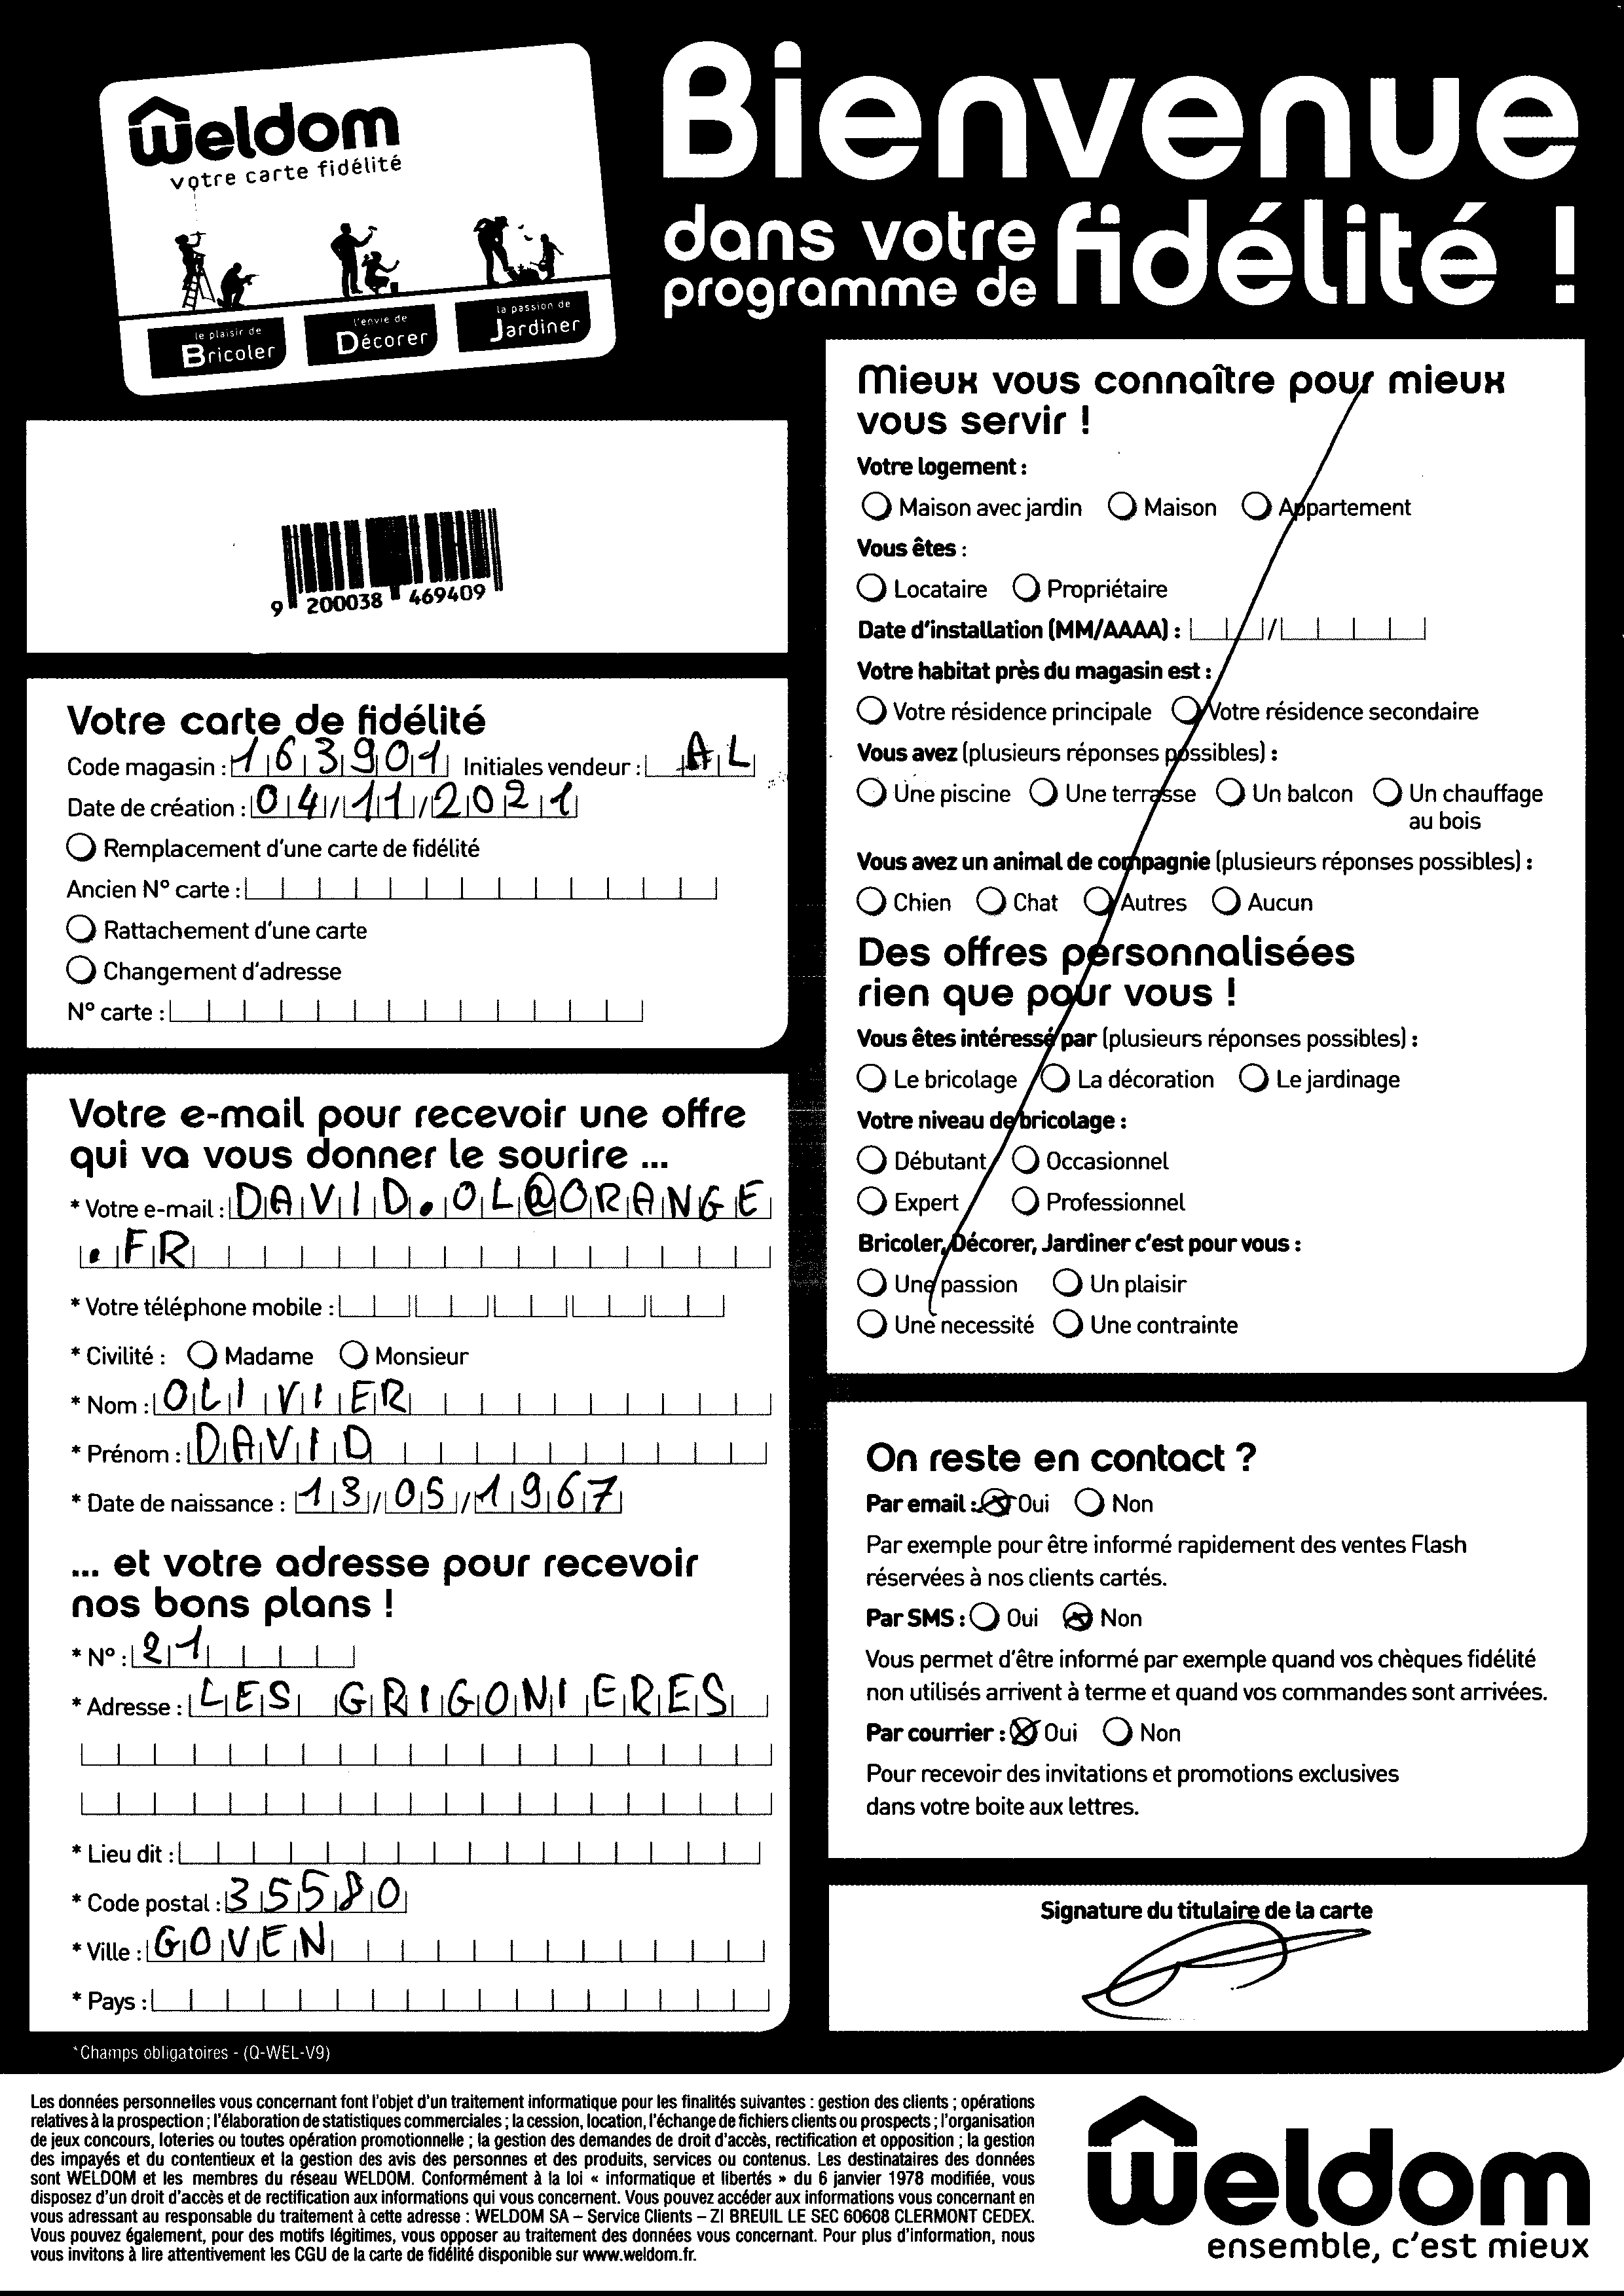 Weldom
votre carte fidélité
le plaisir de
Bricoler
l'envie de
Décorer
la passion de
Jardiner
Bienvenue
dans votre
programme de
fidélité !
9 200038 469409
Votre carte de fidélité
Code magasin : 163901 Initiales vendeur : AL
Date de création : 04/11/2021
Remplacement d'une carte de fidélité
Ancien N° carte :
Rattachement d'une carte
Changement d'adresse
N° carte :
Votre e-mail pour recevoir une offre
qui va vous donner le sourire ...
* Votre e-mail : DAVID.OL@ORANGE
.FR
* Votre téléphone mobile :
* Civilité : Madame Monsieur
* Nom : OLIVIER
* Prénom : DAVID
* Date de naissance : 13/05/1967
... et votre adresse pour recevoir
nos bons plans !
* N° : 21
* Adresse : LES GRIGONIERES
* Lieu dit :
* Code postal : 35580
* Ville : GOVEN
* Pays :
*Champs obligatoires - (Q-WEL-V9)
Mieux vous connaître pour mieux
vous servir !
Votre logement :
Maison avec jardin Maison Appartement
Vous êtes :
Locataire Propriétaire
Date d'installation (MM/AAAA) : /
Votre habitat près du magasin est :
Votre résidence principale Votre résidence secondaire
Vous avez (plusieurs réponses possibles) :
Une piscine Une terrasse Un balcon Un chauffage
au bois
Vous avez un animal de compagnie (plusieurs réponses possibles) :
Chien Chat Autres Aucun
Des offres personnalisées
rien que pour vous !
Vous êtes intéressé par (plusieurs réponses possibles) :
Le bricolage La décoration Le jardinage
Votre niveau de bricolage :
Débutant Occasionnel
Expert Professionnel
Bricoler, Décorer, Jardiner c'est pour vous :
Une passion Un plaisir
Une necessité Une contrainte
On reste en contact ?
Par email : Oui Non
Par exemple pour être informé rapidement des ventes Flash
réservées à nos clients cartés.
Par SMS : Oui Non
Vous permet d'être informé par exemple quand vos chèques fidélité
non utilisés arrivent à terme et quand vos commandes sont arrivées.
Par courrier : Oui Non
Pour recevoir des invitations et promotions exclusives
dans votre boite aux lettres.
Signature du titulaire de la carte
Les données personnelles vous concernant font l'objet d'un traitement informatique pour les finalités suivantes : gestion des clients ; opérations
relatives à la prospection ; l'élaboration de statistiques commerciales ; la cession, location, l'échange de fichiers clients ou prospects ; l'organisation
de jeux concours, loteries ou toutes opération promotionnelle ; la gestion des demandes de droit d'accès, rectification et opposition ; la gestion
des impayés et du contentieux et la gestion des avis des personnes et des produits, services ou contenus. Les destinataires des données
sont WELDOM et les membres du réseau WELDOM. Conformément à la loi « informatique et libertés » du 6 janvier 1978 modifiée, vous
disposez d'un droit d'accès et de rectification aux informations qui vous concernent. Vous pouvez accéder aux informations vous concernant en
vous adressant au responsable du traitement à cette adresse : WELDOM SA – Service Clients – ZI BREUIL LE SEC 60608 CLERMONT CEDEX.
Vous pouvez également, pour des motifs légitimes, vous opposer au traitement des données vous concernant. Pour plus d'information, nous
vous invitons à lire attentivement les CGU de la carte de fidélité disponible sur www.weldom.fr.
Weldom
ensemble, c'est mieux